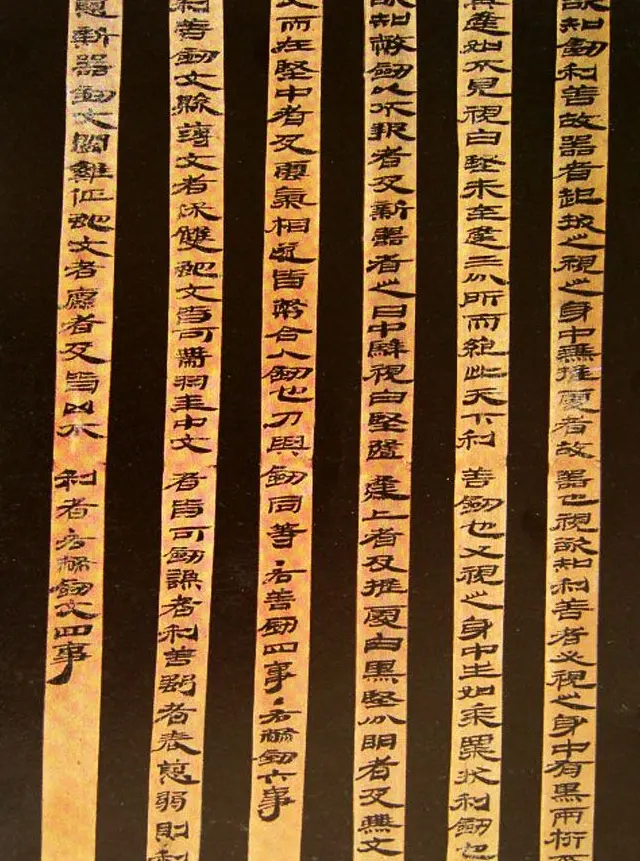 欲知劍利善故器者起拔之視之身中無推處者故器也視欲知利善者必視之身中有黑兩桁
其逢如不見視白堅未至逢三分所而絕此天下利善劍也又視之身中生如黍粟狀利劍也
欲知幣劍以不報者及新器者之日中騂視白堅隨逢上者及推處白黑堅分明者及無文
文而在堅中者及雲氣相遂皆幣合人劍也刀與劍同等·右善劍四事·右幣劍六事
利善劍文縣薄文者保雙蛇文皆可帶羽圭中文者皆可劍謙者利善強者表惡弱則利
惡新器劍文鬭雞佂蛇文者麤者及皆凶不利者右幣劍文四事